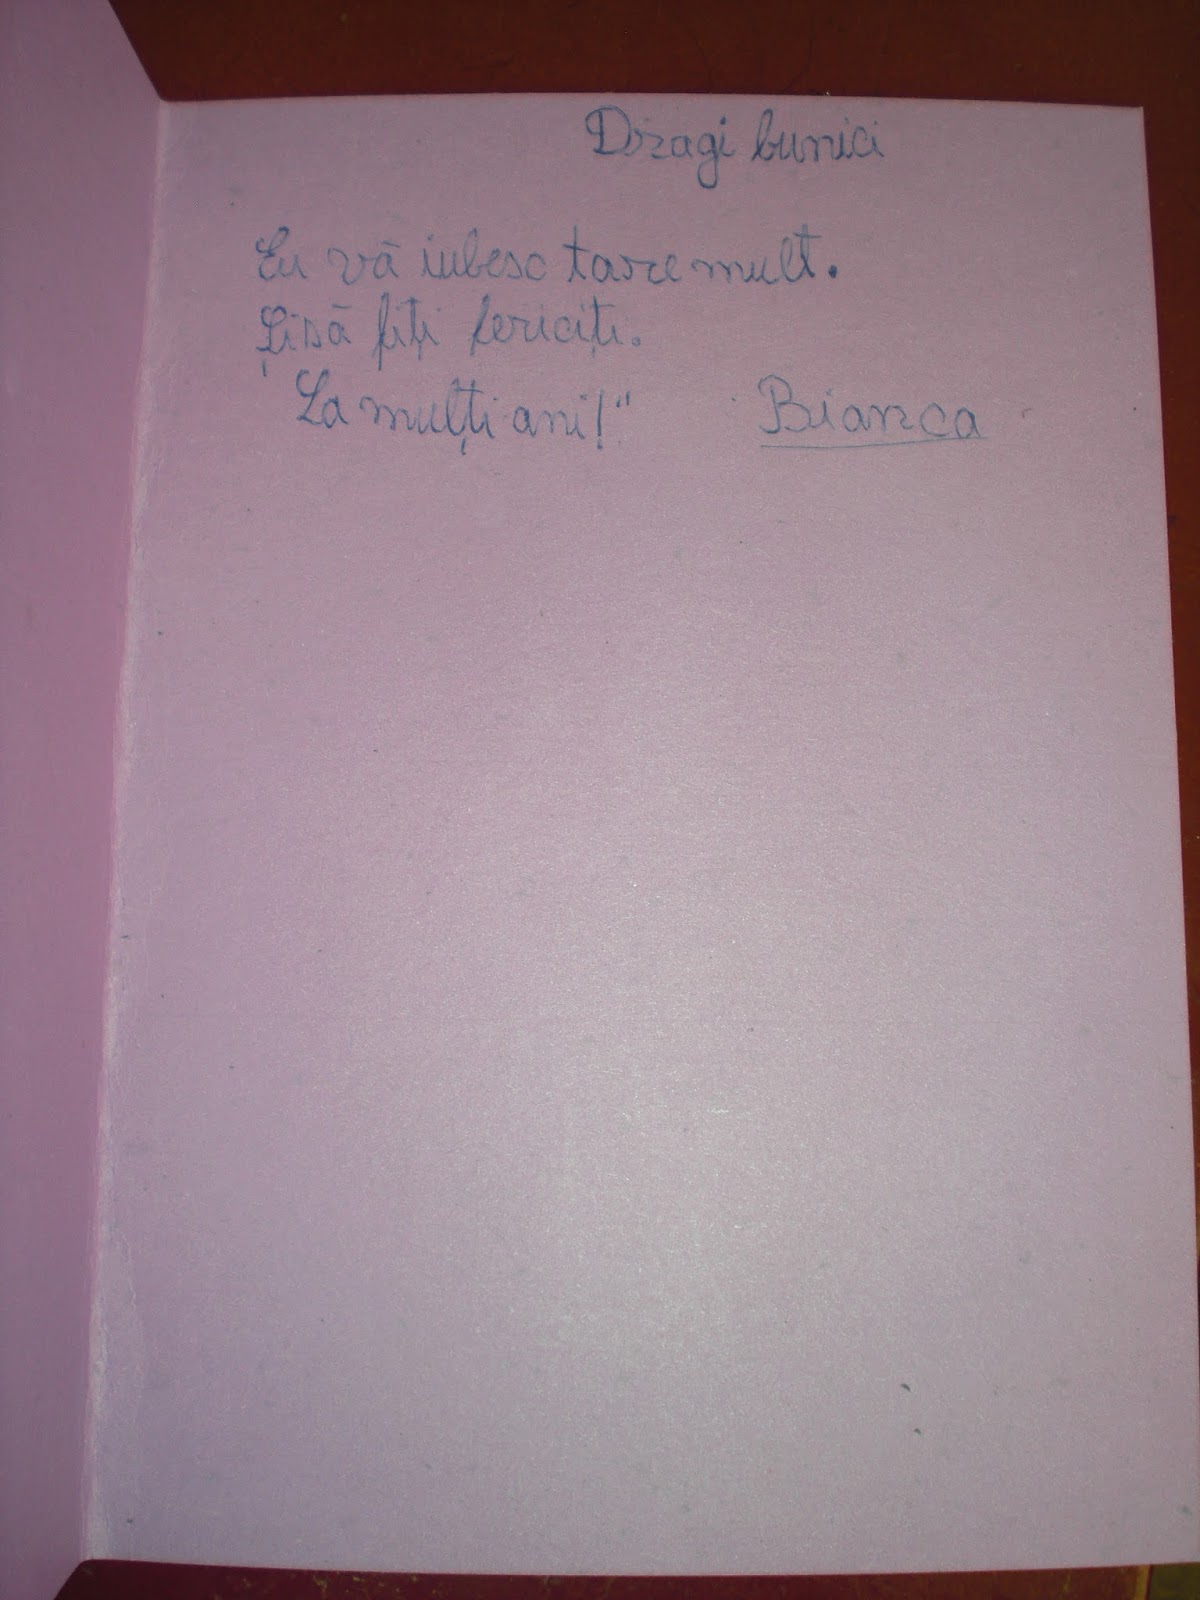 Dragi bunici
Eu vă iubesc tare mult.
Și să fiți fericiți.
La mulți ani!"
Bianca